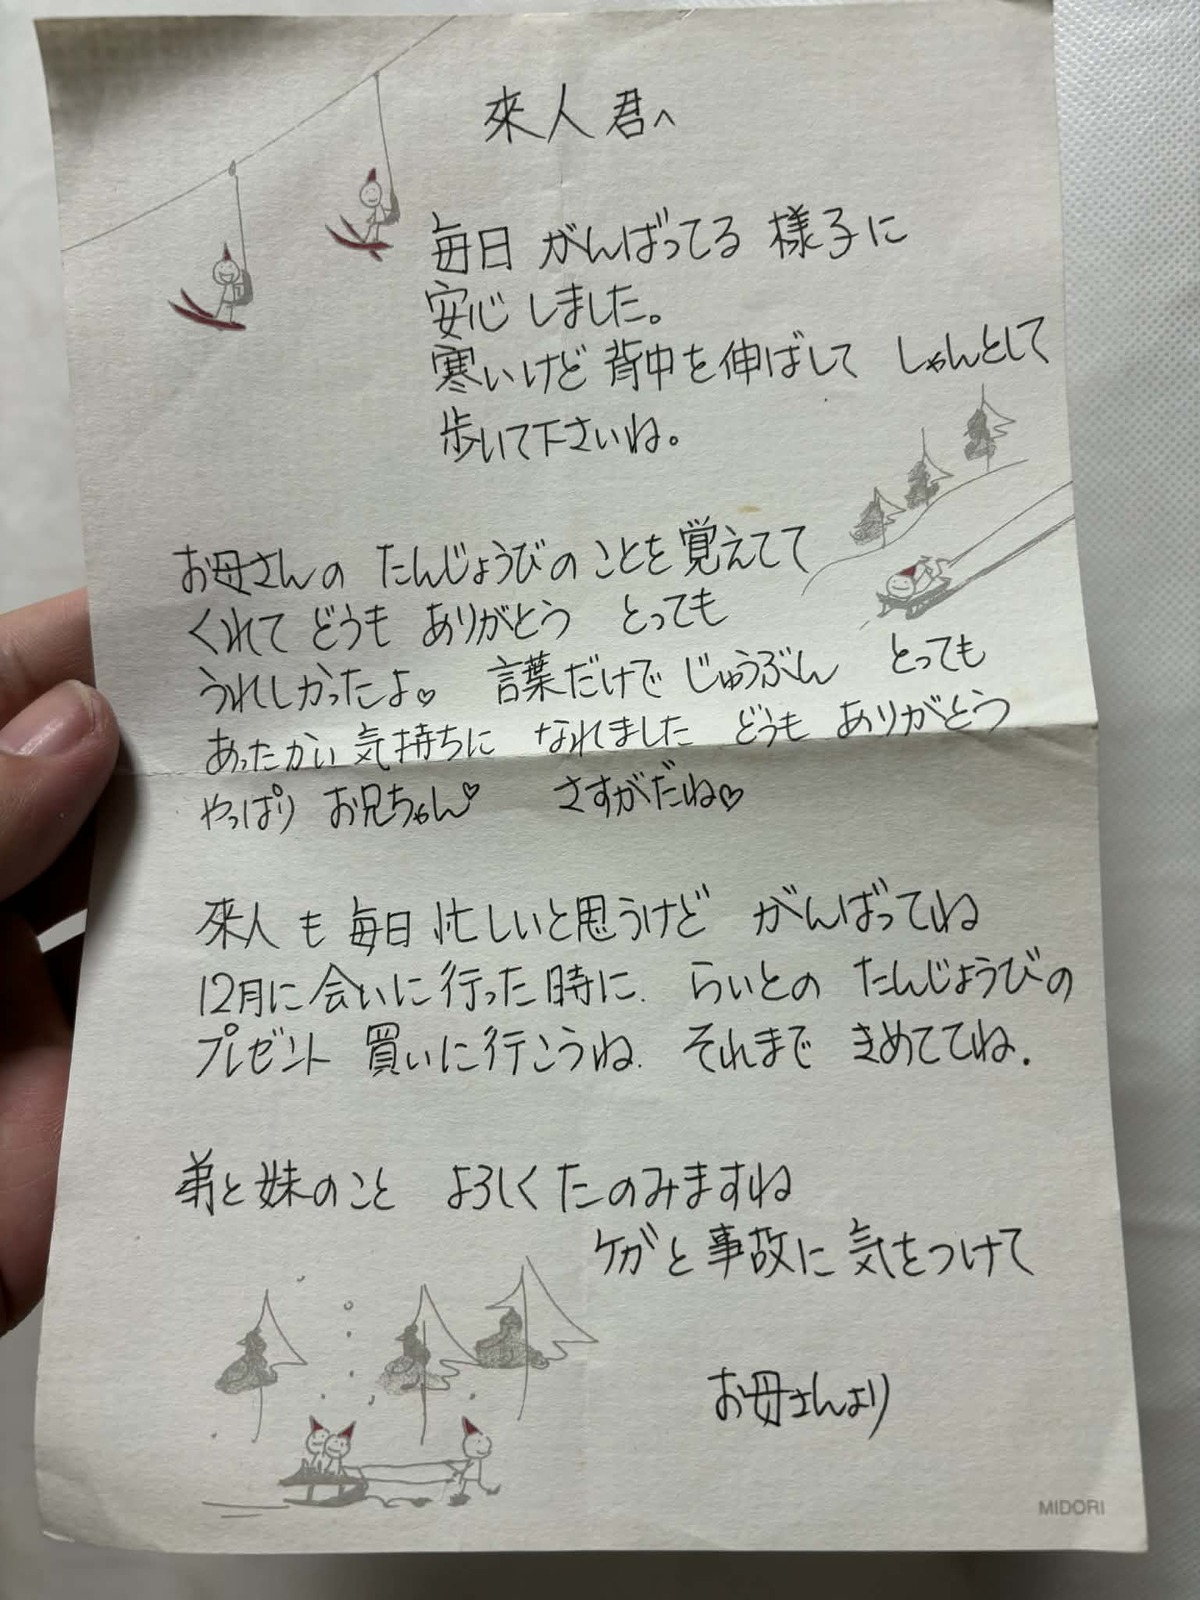 來人君へ
毎日 がんばってる 様子に
安心 しました。
寒いけど 背中を伸ばして しゃんとして
歩いて下さいね。
お母さんの たんじょうびの ことを 覚えてて
くれて どうも ありがとう とっても
うれしかったよ♡ 言葉だけで じゅうぶん とっても
あったかい 気持ちに なれました どうも ありがとう
やっぱり お兄ちゃん♡ さすがだね♡
來人 も 毎日 忙しいと思うけど がんばってね
12月に 会いに 行った 時に. らいとの たんじょうびの
プレゼント 買いに 行こうね. それまで きめててね.
弟と 妹のこと よろしく たのみますね
ケガと 事故に 気をつけて
お母さんより
MIDORI